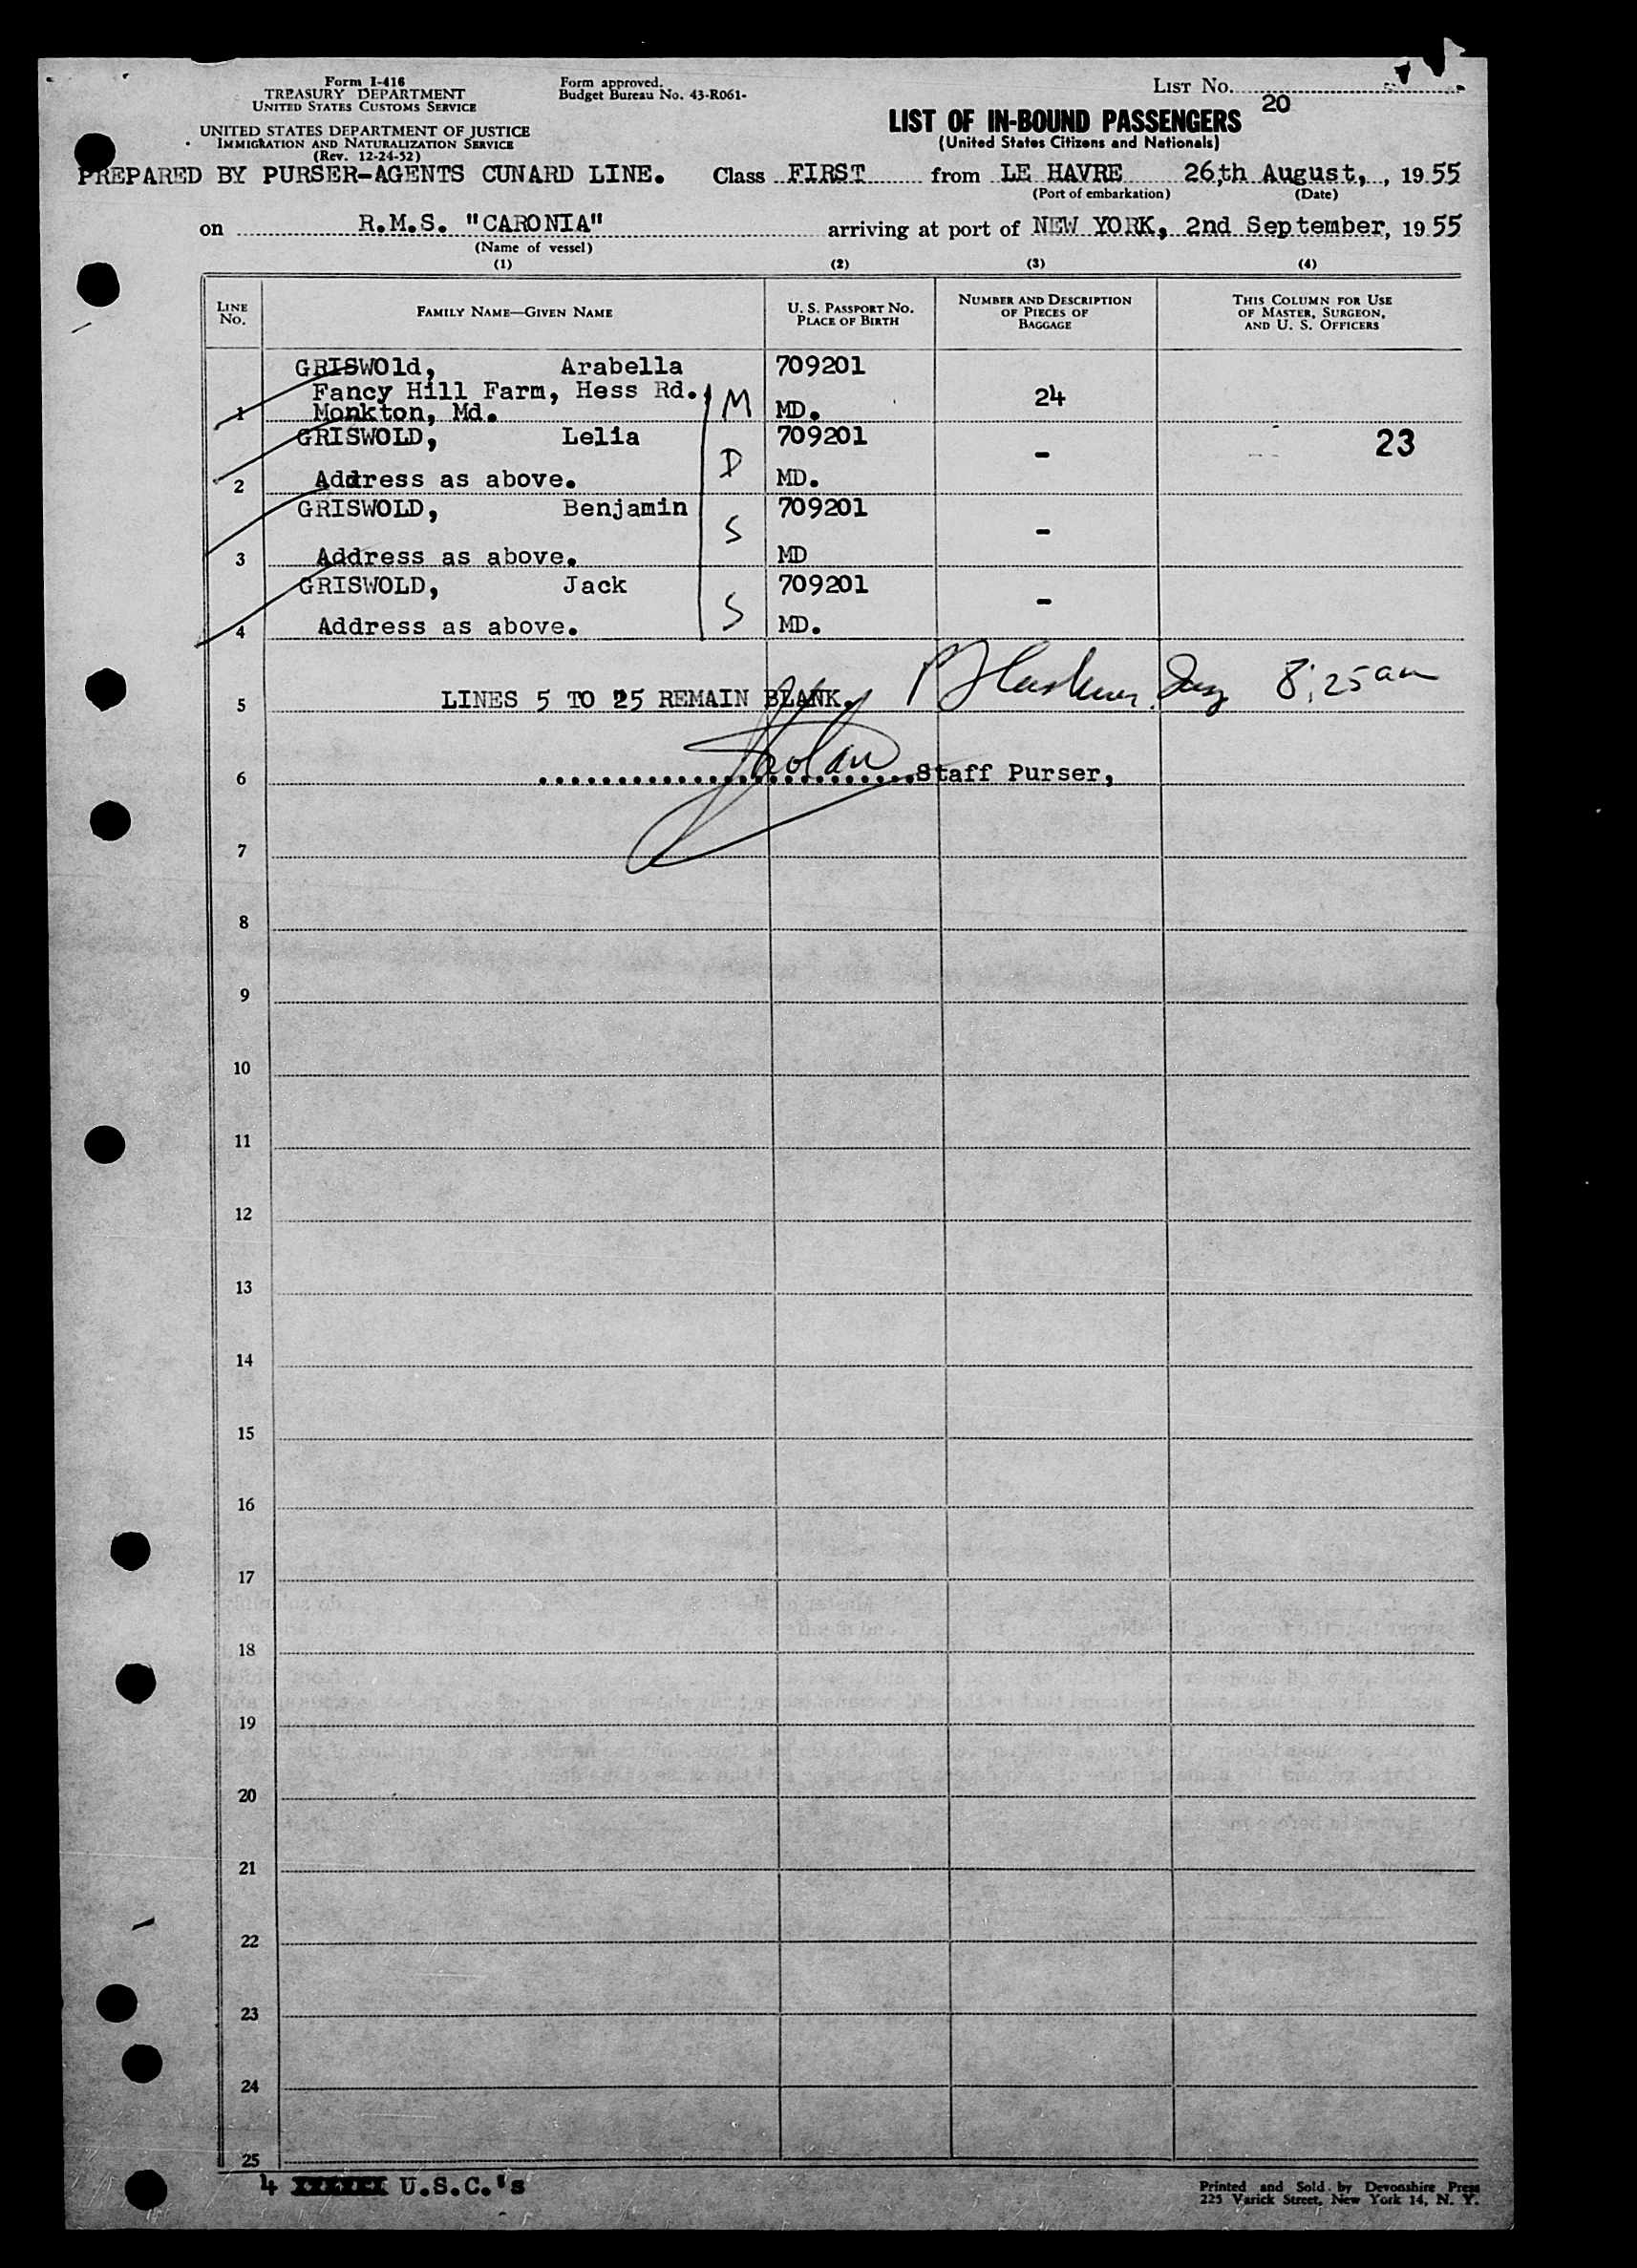 Form I-416
TREASURY DEPARTMENT
UNITED STATES CUSTOMS SERVICE
Form approved.
Budget Bureau No. 43-R061-
LIST NO.
20
UNITED STATES DEPARTMENT OF JUSTICE
IMMIGRATION AND NATURALIZATION SERVICE
(Rev. 12-24-52)
LIST OF IN-BOUND PASSENGERS
(United States Citizens and Nationals)
PREPARED BY PURSER-AGENTS CUNARD LINE. Class FIRST from LE HAVRE 26,th August, , 1955
(Port of embarkation) (Date)
on R.M.S. "CARONIA" arriving at port of NEW YORK, 2nd September, 1955
(Name of vessel)
(1) (2) (3) (4)
LINE NO. FAMILY NAME—GIVEN NAME U. S. PASSPORT NO. PLACE OF BIRTH NUMBER AND DESCRIPTION OF PIECES OF BAGGAGE THIS COLUMN FOR USE OF MASTER, SURGEON, AND U. S. OFFICERS
GRISWOld, Arabella 709201
Fancy Hill Farm, Hess Rd. M 24
1 Monkton, Md. MD.
GRISWOLD, Lelia 709201 23
D -
2 Address as above. MD.
GRISWOLD, Benjamin 709201
S -
3 Address as above. MD
GRISWOLD, Jack 709201
S -
4 Address as above. MD.
8:25 am
5 LINES 5 TO 25 REMAIN BLANK.
6 Staff Purser,
7
8
9
10
11
12
13
14
15
16
17
18
19
20
21
22
23
24
25
4 U.S.C.'s
Printed and Sold by Devonshire Press
225 Varick Street, New York 14, N. Y.